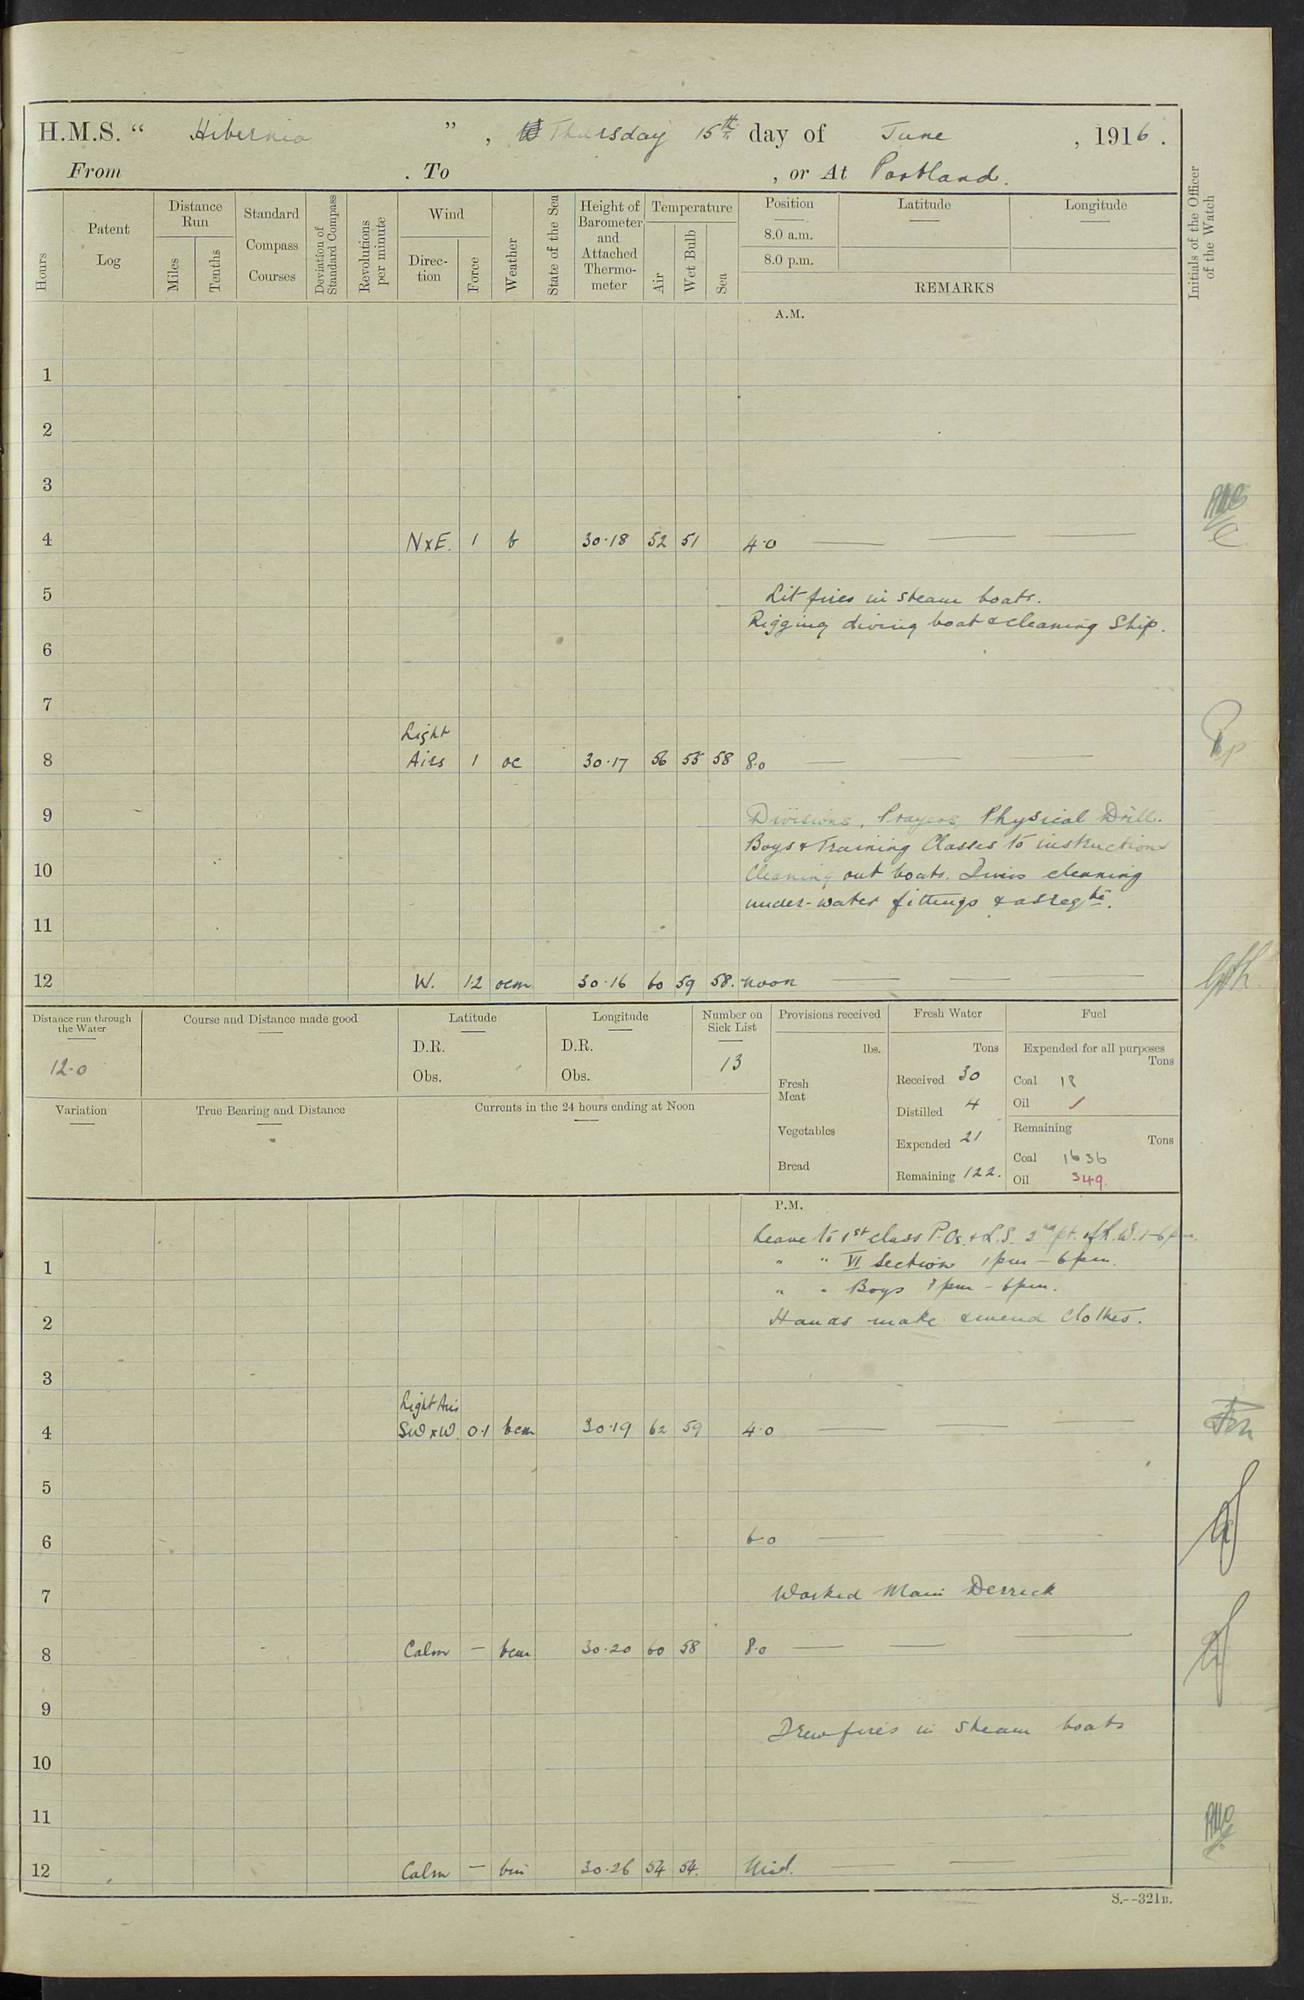 H.M.S. “ Hibernia ” , Thursday 15th day of June , 1916 .
From . To , or At Portland.
Hours
Patent Log
Distance Run
Miles
Tenths
Standard Compass Courses
Deviation of Standard Compass
Revolutions per minute
Wind
Direction
Force
Weather
State of the Sea
Height of Barometer and Attached Thermometer
Temperature
Air
Wet Bulb
Sea
Position
8.0 a.m.
8.0 p.m.
Latitude
Longitude
REMARKS
Initials of the Officer of the Watch
A.M.
1
2
3
4 NxE. 1 b 30.18 52 51 4.0
5 Lit fires in steam boats.
Rigging diving boat & cleaning Ship.
6
7
Light
8 Airs 1 oc 30.17 56 55 58 8.0
9 Divisions, Prayers, Physical Drill.
Boys & Training Classes to instruction
10 Cleaning out boats. Divers cleaning
under-water fittings & as reqte.
11
12 W. 1.2 ocm 30.16 60 59 58. noon
Distance run through the Water
12.0
Course and Distance made good
Latitude
D.R.
Obs.
Longitude
D.R.
Obs.
Number on Sick List
13
Provisions received
lbs.
Fresh Meat
Vegetables
Bread
Fresh Water
Tons
Received 30
Distilled 4
Expended 21
Remaining 122.
Fuel
Expended for all purposes
Tons
Coal 18
Oil
Remaining
Tons
Coal 1636
Oil 349.
Variation
True Bearing and Distance
Currents in the 24 hours ending at Noon
P.M.
Leave to 1st class P.Os. & L.S. 2nd pt. of R.W. 1-6pm.
1 " " VI Section 1pm - 6pm.
" " Boys 1pm - 6pm.
2 Hands make & mend Clothes.
3
Light Airs
4 SWxW 0.1 bcm 30.19 62 59 4.0
5
6 6.0
7 Worked Main Derrick
8 Calm - bcm 30.20 60 58 8.0
9
Drew fires in steam boats
10
11
12 Calm - bm 30.26 54 54. Mid.
S.--321B.